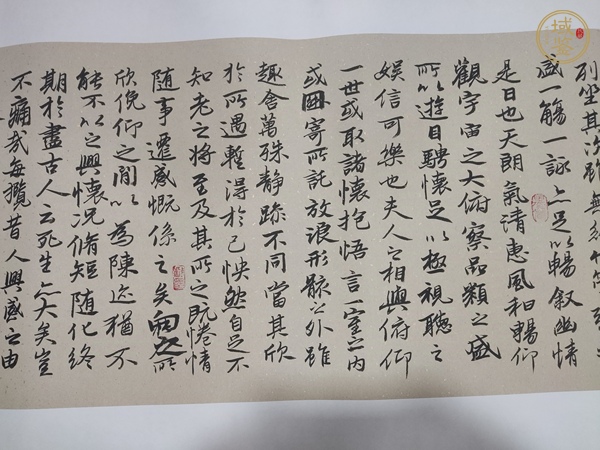 列坐其次雖無
盛一觴一詠亦足以暢敘幽情
是日也天朗氣清惠風和暢仰
觀宇宙之大俯察品類之盛
所以遊目騁懷足以極視聽之
娛信可樂也夫人之相與俯仰
一世或取諸懷抱悟言一室之內
或因寄所託放浪形骸之外雖
趣舍萬殊靜躁不同當其欣
於所遇暫得於己怏然自足不
知老之將至及其所之既惓情
隨事遷感慨係之矣向之所
欣俛仰之間以為陳迹猶不
能不以之興懷況脩短隨化終
期於盡古人云死生亦大矣豈
不痛哉每攬昔人興感之由